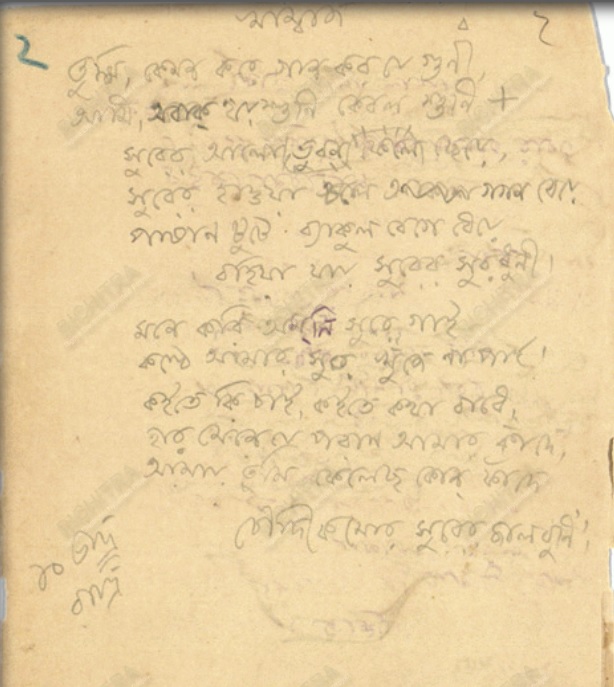 ২
খাম্বাজ
২
তুমি, কেমন করে গান কর যে গুণী,
আমি, অবাক হয়ে শুনি কেবল শুনি +
সুরের আলো ভুবন ফেলে ছেয়ে,
সুরের হাওয়া চলে গগন বেয়ে
পাষাণ টুটে ব্যাকুল বেগে ধেয়ে
বহিয়া যায় সুরের সুরধুনী।
মনে করি অমনি সুরে গাই
কণ্ঠে আমার সুর খুঁজে না পাই।
কইতে কি চাই, কইতে কথা বাধে,
হার মেনে যে পরাণ আমার কাঁদে,
আমায় তুমি ফেলেছ কোন্ ফাঁদে
চৌদিকে মোর সুরের জাল বুনি।
১০ ভাদ্র
রাত্রি
BICHITRA